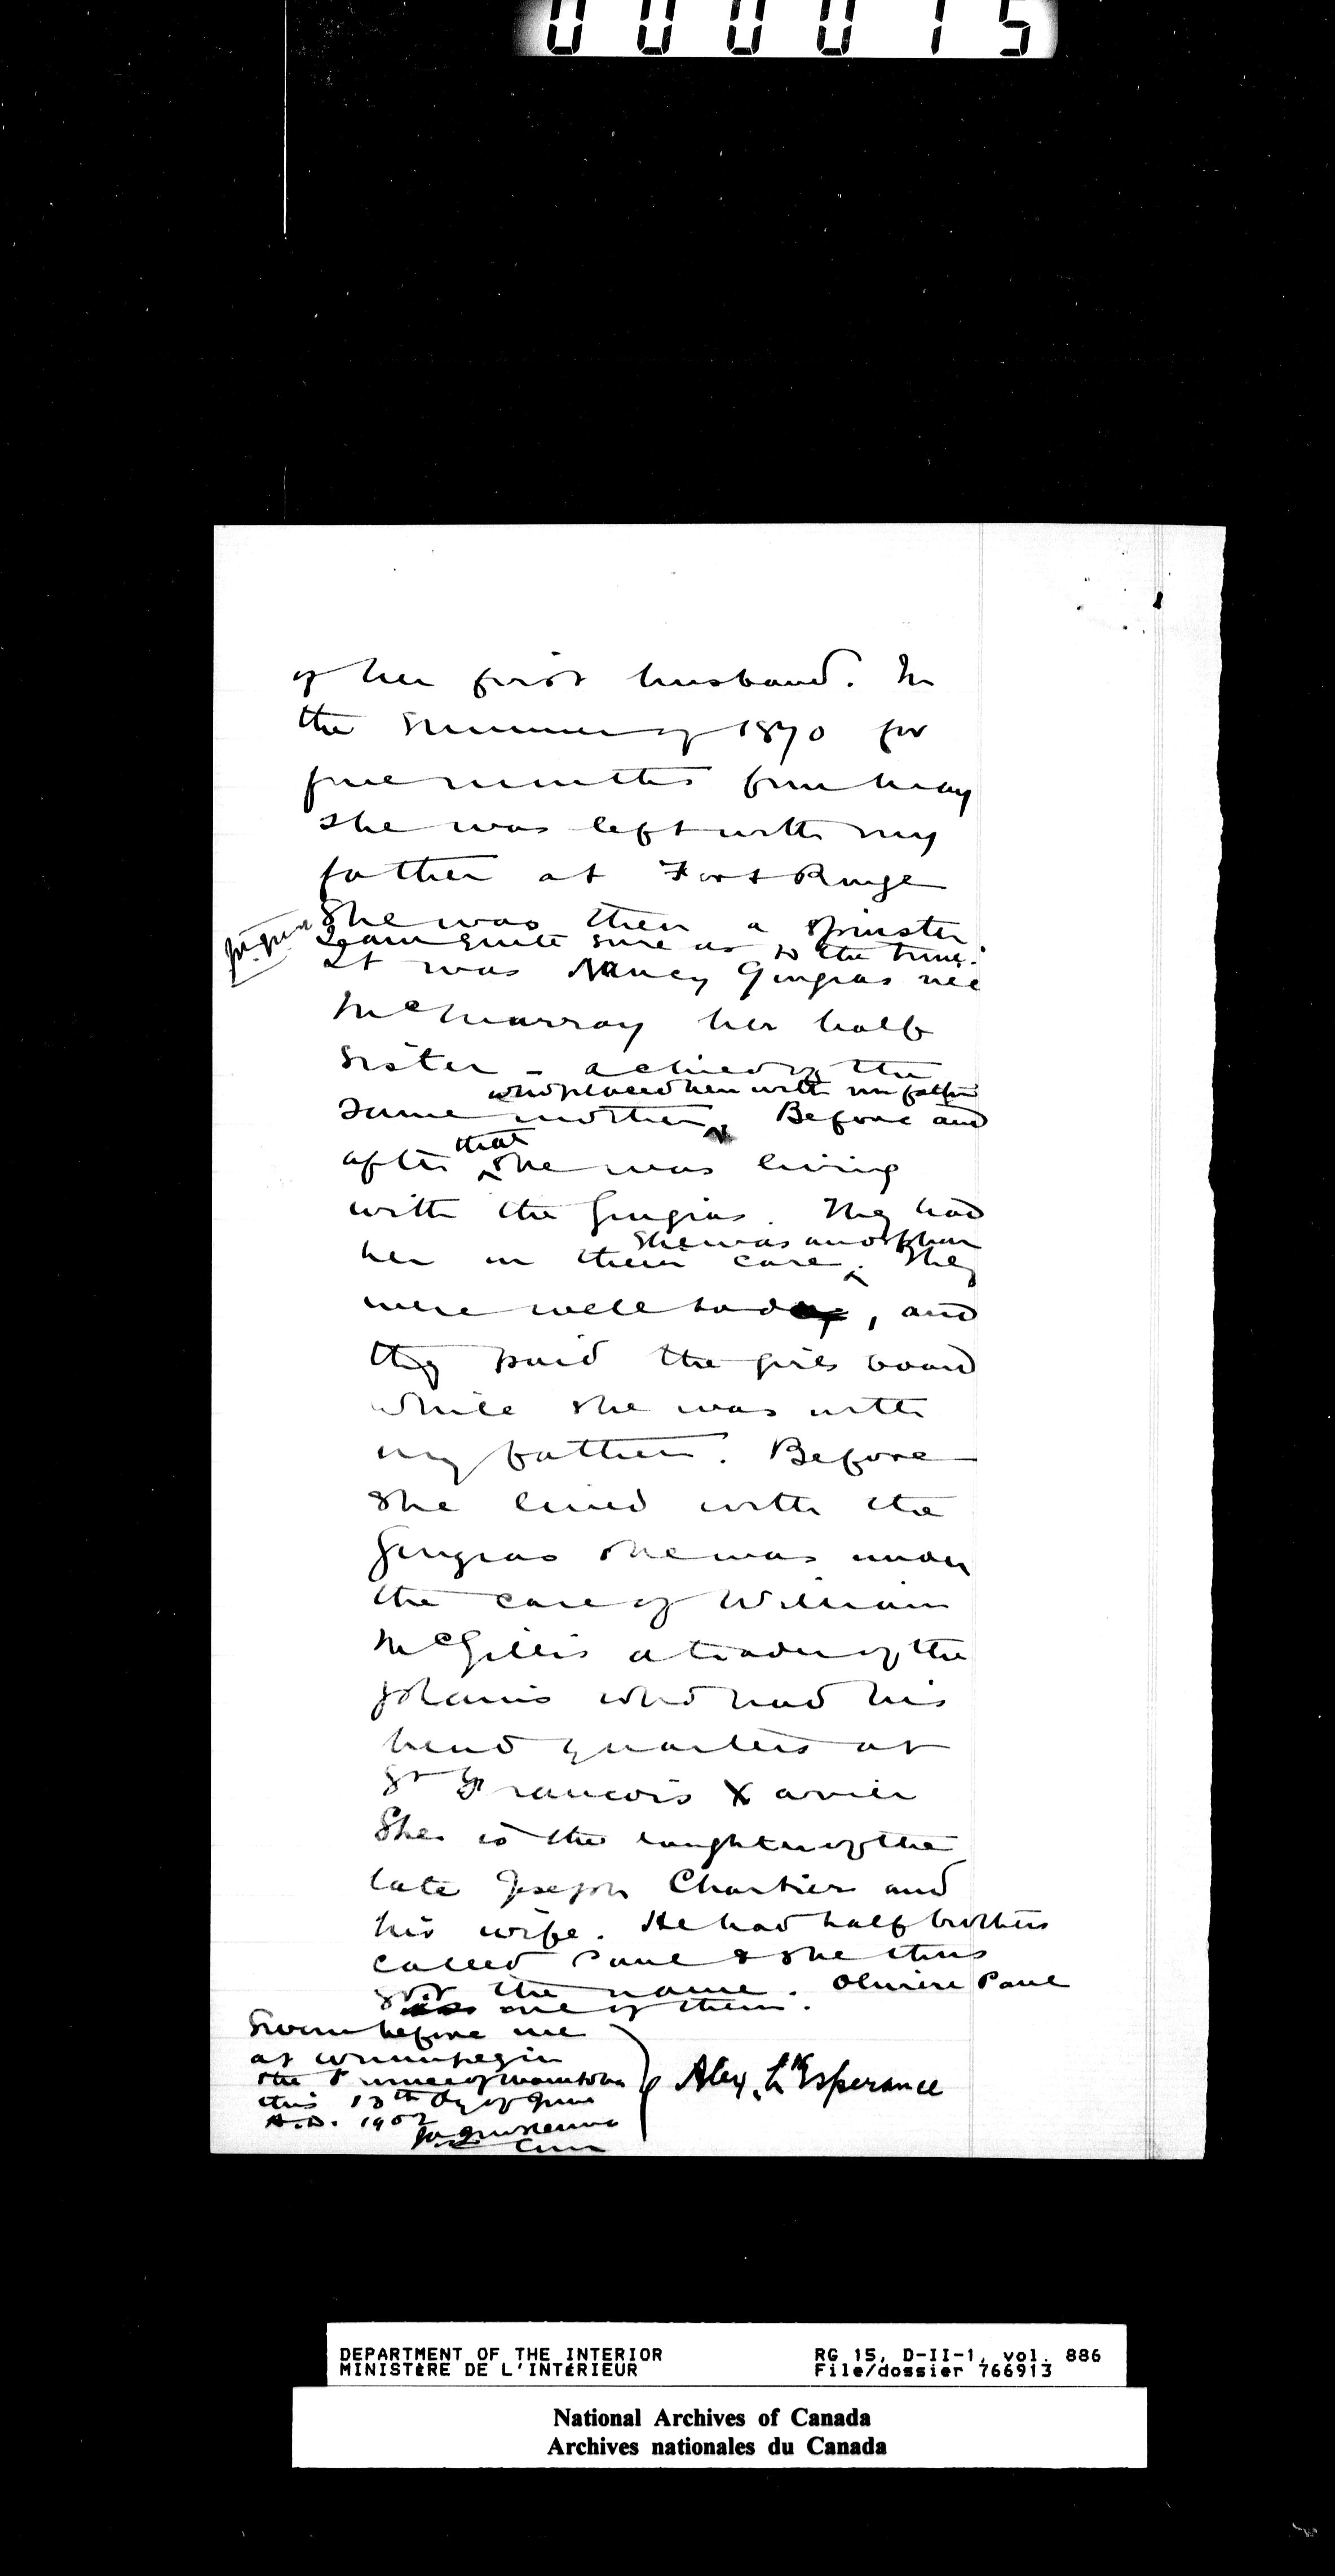 000015
of her first husband. In
the summer of 1870 for
five months from May
she was left with my
father at Fort Rouge
She was then a spinster
I am quite sure as to the time.
It was Nancy Gingras née
McMurray her half
sister - a child of the
who placed her with my father
same mother. Before and
that
after she was living
with the Gingras. They had
She was an orphan
her in their care. They
were well to do, and
they paid the girls board
while she was with
my father. Before
she lived with the
Gingras she was under
the care of William
McGillis a trader of the
plains who had his
head quarters at
St Francois Xavier
She is the daughter of the
late Joseph Chartier and
his wife. He had half brothers
called Paul & she thus
got the name. Oliviere Paul
one of them.
Sworn before me
at Winnipeg in
the Province of Manitoba
this 13th dy of June
A.D. 1902
Alex. L'Esperance
Com
DEPARTMENT OF THE INTERIOR
MINISTÈRE DE L'INTÉRIEUR
RG 15, D-II-1, vol. 886
File/dossier 766913
National Archives of Canada
Archives nationales du Canada